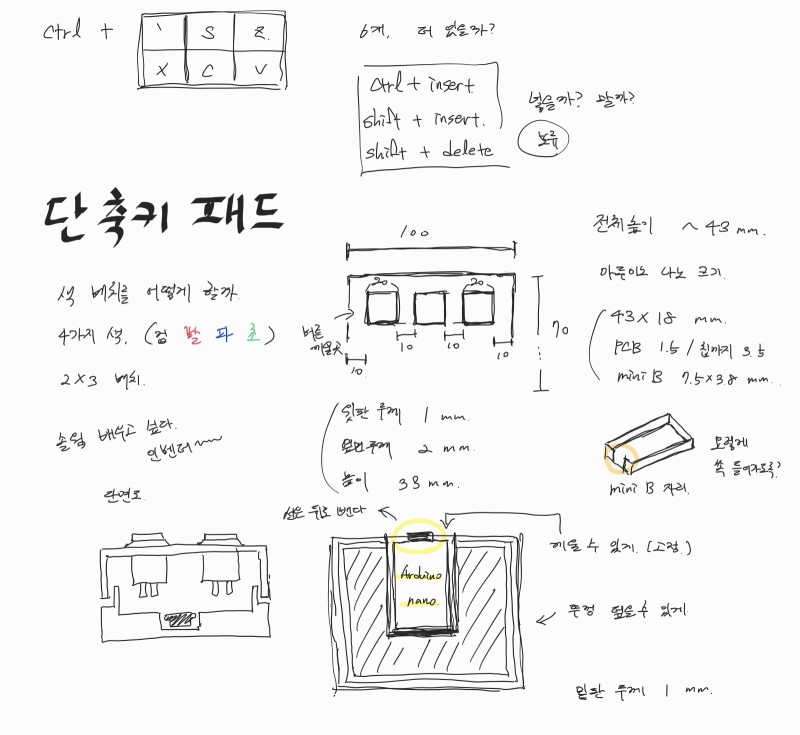 ctrl +
\ S Z
X C V
6개, 더 있을까?
ctrl + insert
shift + insert.
shift + delete
넣을까? 말까?
보류
단축키 패드
색 배치를 어떻게 할까
4가지 색. (검 빨 파 초)
2 X 3 배치.
솔웍 배우고 싶다.
인벤터~~~
100
20
20
버튼
끼울곳
10
10
10
10
70
전체높이 ~ 43 mm.
아두이노 나노 크기.
43 X 18 mm.
PCB 1.5 / 칩까지 3.5
mini B 7.5 x 3.8 mm.
윗판 두께 1 mm.
옆면두께 2 mm.
높이 38 mm.
요렇게
쏙 들어가도록?
mini B 자리.
단면도
선은 뒤로 뺀다
끼울 수 있게. (고정.)
Arduino
nano.
뚜껑 덮을수 있게.
밑판 두께 1 mm.